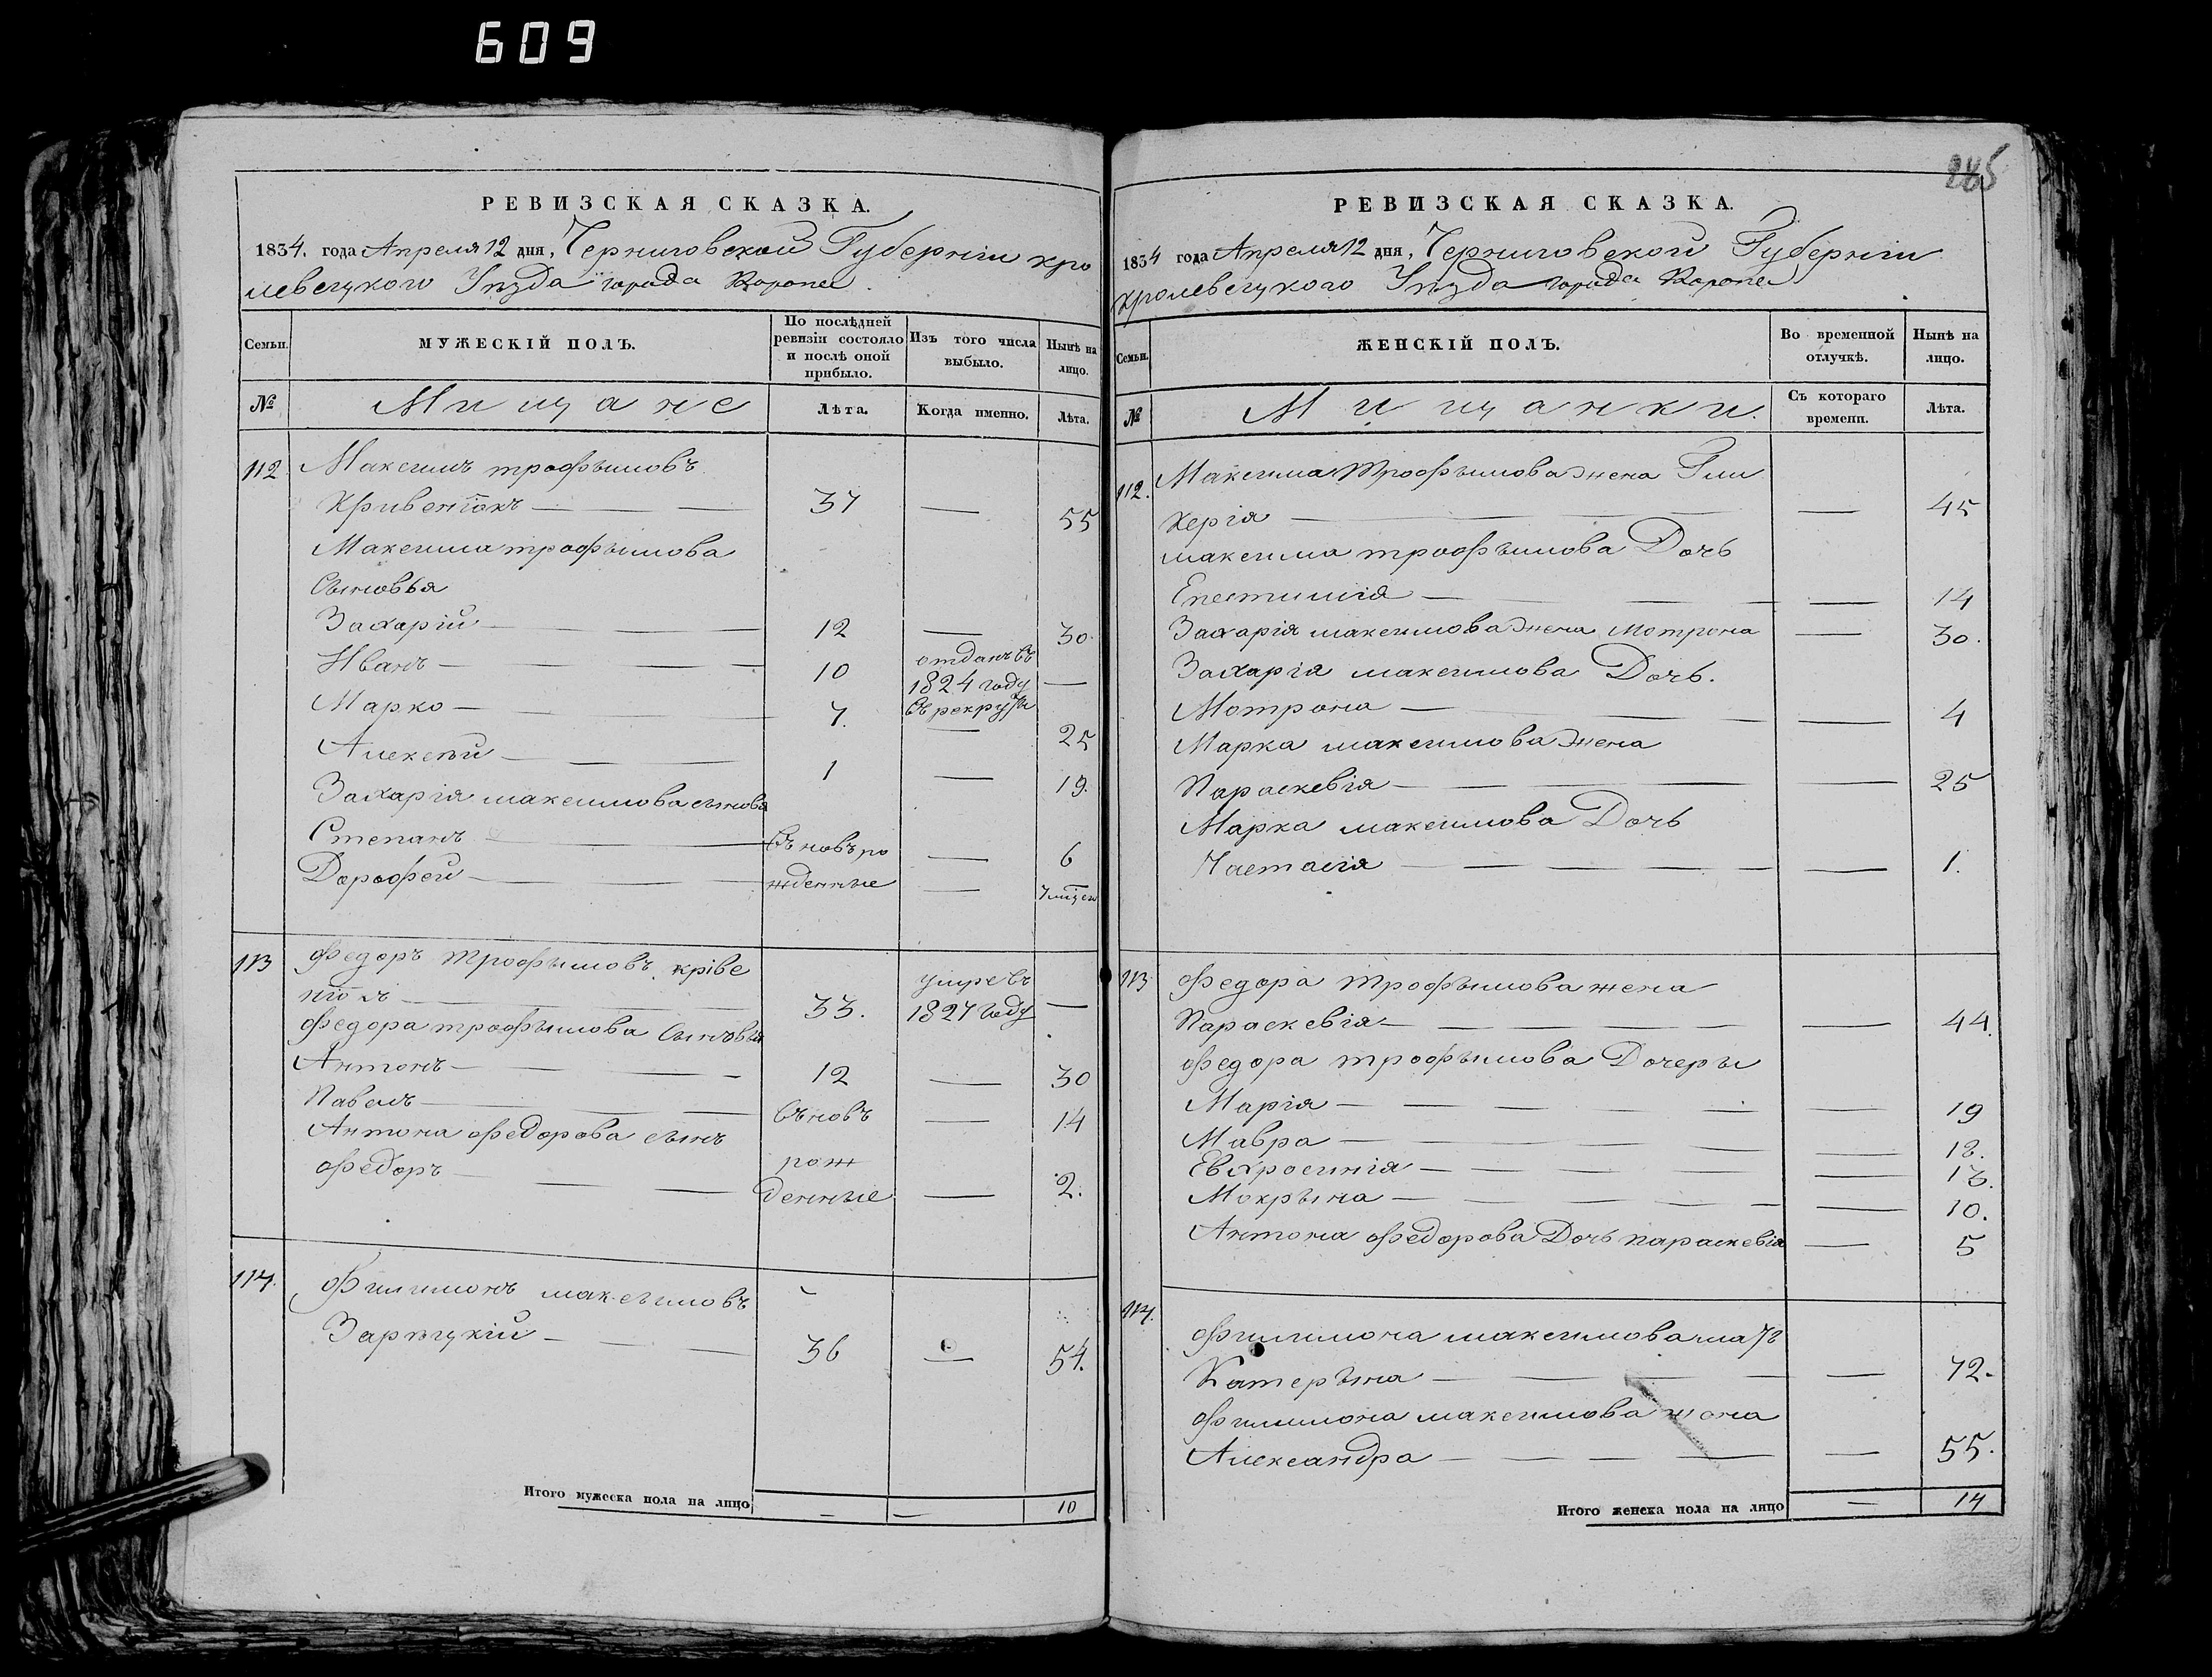 609
РЕВИЗСКАЯ СКАЗКА.
1834. года Апреля 12 дня, Черниговской Губерніи кро
левецкого Уезда города Коропа
Семьи. МУЖЕСКІЙ ПОЛЪ. По послѣдней ревизіи состояло и послѣ оной прибыло. Изъ того числа выбыло. Нынѣ на лицо.
№ Мищане Лѣта. Когда именно. Лѣта.
112 Максимъ трофымовъ
Кривен̅окъ 37 — 55
Максима трофымова
Сыновья
Захарій 12 — 30.
Иванъ 10 отданъ въ 1824 году въ рекруты —
Марко 7. — 25
Алексѣй 1 — 19.
Захарія максимова сынова
Степанъ Въновъ ро — 6
Дорофей жденные — 7 мѣцей
113 Федоръ трофымовъ кріве
нокъ 33. умре въ 1827 году —
Федора трофымова Сыновья
Антонъ 12 — 30
Павелъ Въновъ — 14
Антона Федорова сынъ рож
Федоръ денные — 2.
114. Филимонъ максымовъ
Зарѣцкій 36 — 54.
Итого мужеска пола на лицо — — 10
285
РЕВИЗСКАЯ СКАЗКА.
1834 года Апреля 12 дня, Черниговской Губерніи
кролевецкого Уезда города Коропа
Семьи. ЖЕНСКІЙ ПОЛЪ. Во временной отлучкѣ. Нынѣ на лицо.
№ Мищанки. Съ котораго времени. Лѣта.
112. Максима Трофымова жена Гли
керія — 45
максима трофымова Дочь
Епестимія — 14
Захарія максимова жена Мотрона — 30.
Захарія максимова Дочь.
Мотрона — 4
Марка максимова жена
Параскевія — 25
Марка максимова Дочь
Настасія — 1.
113 Федора трофымова жена
Параскевія — 44.
Федора трофымова Дочеры
Марія — 19
Мавра — 18.
Евхросинія — 13.
Мокрына — 10.
Антона Федорова Дочь параскевія — 5
114. Филимона максимова мать
Катерына — 72.
Филимона максимова жона
Александра — 55.
Итого женска пола на лицо — 14